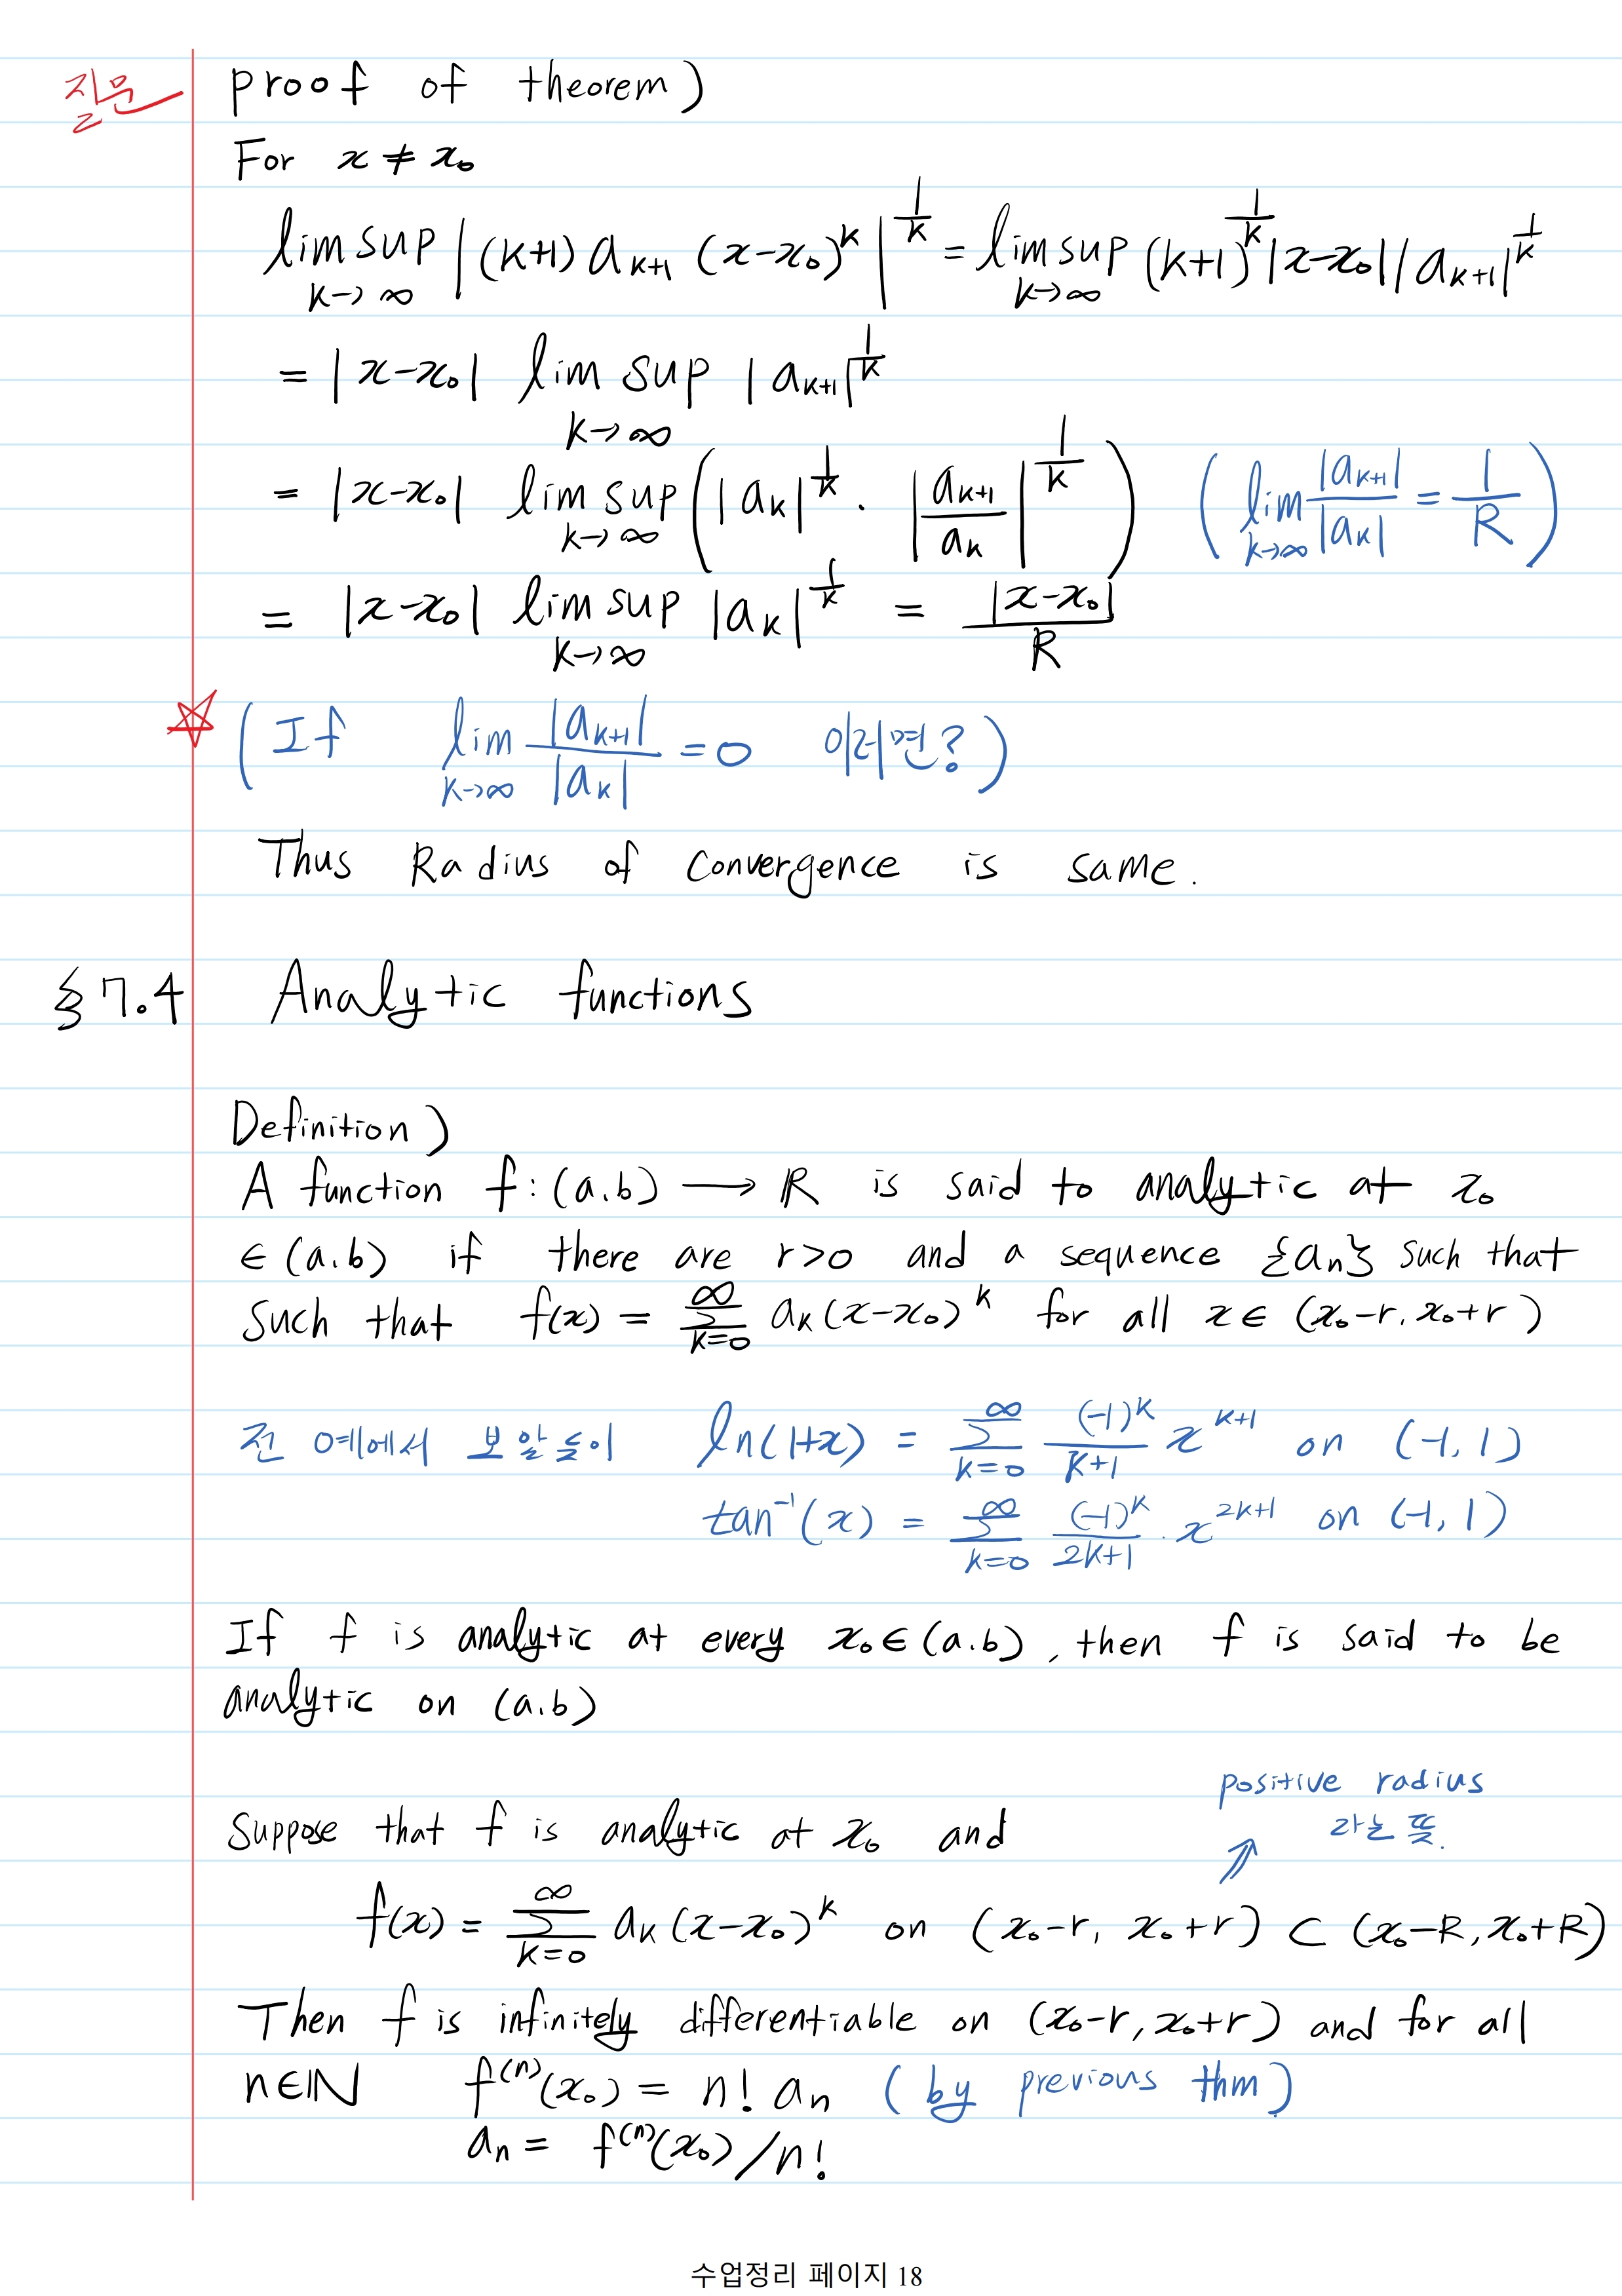 질문
proof of theorem)
For x ≠ x₀
lim sup_{k→∞} |(k+1) a_{k+1} (x-x₀)^k|^{1/k} = lim sup_{k→∞} (k+1)^{1/k} |x-x₀| |a_{k+1}|^{1/k}
= |x-x₀| lim sup_{k→∞} |a_{k+1}|^{1/k}
= |x-x₀| lim sup_{k→∞} (|a_k|^{1/k} · |a_{k+1}/a_k|^{1/k}) (lim_{k→∞} |a_{k+1}|/|a_k| = 1/R)
= |x-x₀| lim sup_{k→∞} |a_k|^{1/k} = |x-x₀|/R
☆ (If lim_{k→∞} |a_{k+1}|/|a_k| = 0 이러면?)
Thus Radius of convergence is same.
§ 7.4 Analytic functions
Definition)
A function f: (a.b) ⟶ ℝ is said to analytic at x₀
∈ (a.b) if there are r>0 and a sequence {a_n} such that
such that f(x) = ∑_{k=0}^{∞} a_k (x-x₀)^k for all x ∈ (x₀-r, x₀+r)
전 예에서 보았듯이 ln(1+x) = ∑_{k=0}^{∞} (-1)^k/(k+1) x^{k+1} on (-1, 1)
tan⁻¹(x) = ∑_{k=0}^{∞} (-1)^k/(2k+1) · x^{2k+1} on (-1, 1)
If f is analytic at every x₀ ∈ (a.b), then f is said to be
analytic on (a.b)
positive radius
라는 뜻.
Suppose that f is analytic at x₀ and
⇗
f(x) = ∑_{k=0}^{∞} a_k (x-x₀)^k on (x₀-r, x₀+r) ⊂ (x₀-R, x₀+R)
Then f is infinitely differentiable on (x₀-r, x₀+r) and for all
n∈ℕ f^{(n)}(x₀) = n! a_n (by previous thm)
a_n = f^{(n)}(x₀)/n!
수업정리 페이지 18